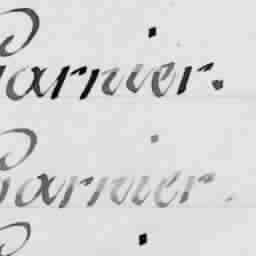 Garnier.
Garnier.